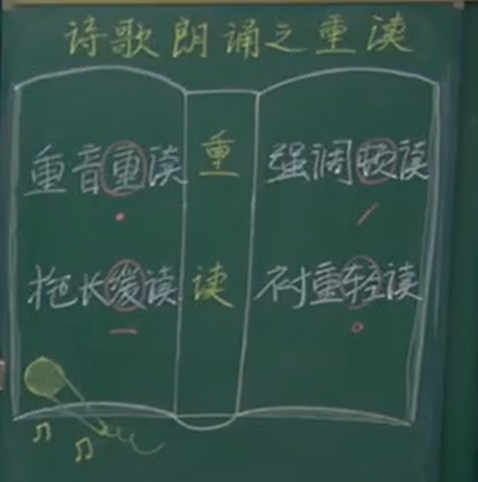 诗歌朗诵之重读
重音重读 重 强调顿读
拖长缓读 读 衬重轻读